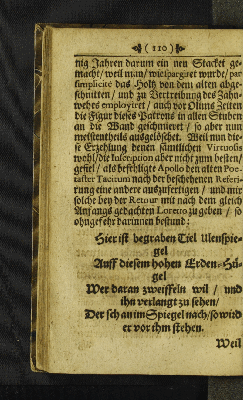 (110)
nig Jahren darum ein neu Stacket ge-
macht/ weil man/ wie spargiret wurde/ par
simplicité das Holtz von dem alten abge-
schnitten/ und zu Vertreibung des Zahn-
wehes employirt/ auch vor Olims Zeiten
die Figur dieses Patrons in allen Stuben
an die Wand gezeichnet/ so aber nun
meistentheils ausgelöschet. Weil nun die-
se Erzehlung denen sämtlichen Virtuosis
wohl/ die Inscription aber nicht zum besten/
gefiel/ als befehligte Apollo den alten Poe-
taster Tacitum nach der beschehenen Referi-
rung eine andere auszufertigen/ und mir
solche bey der Retour mit nach dem gleich
Anfangs gedachten Loretto zu geben/ so
ohngefehr darinnen bestund:
Hier ist begraben Tiel Ulenspie-
gel
Auff diesem hohen Erden-Hü-
gel
Wer daran zweiffeln wil/ und
ihn verlangt zu sehen/
Der schau im Spiegel nach/ so wird
er vor ihm stehen.
Weil